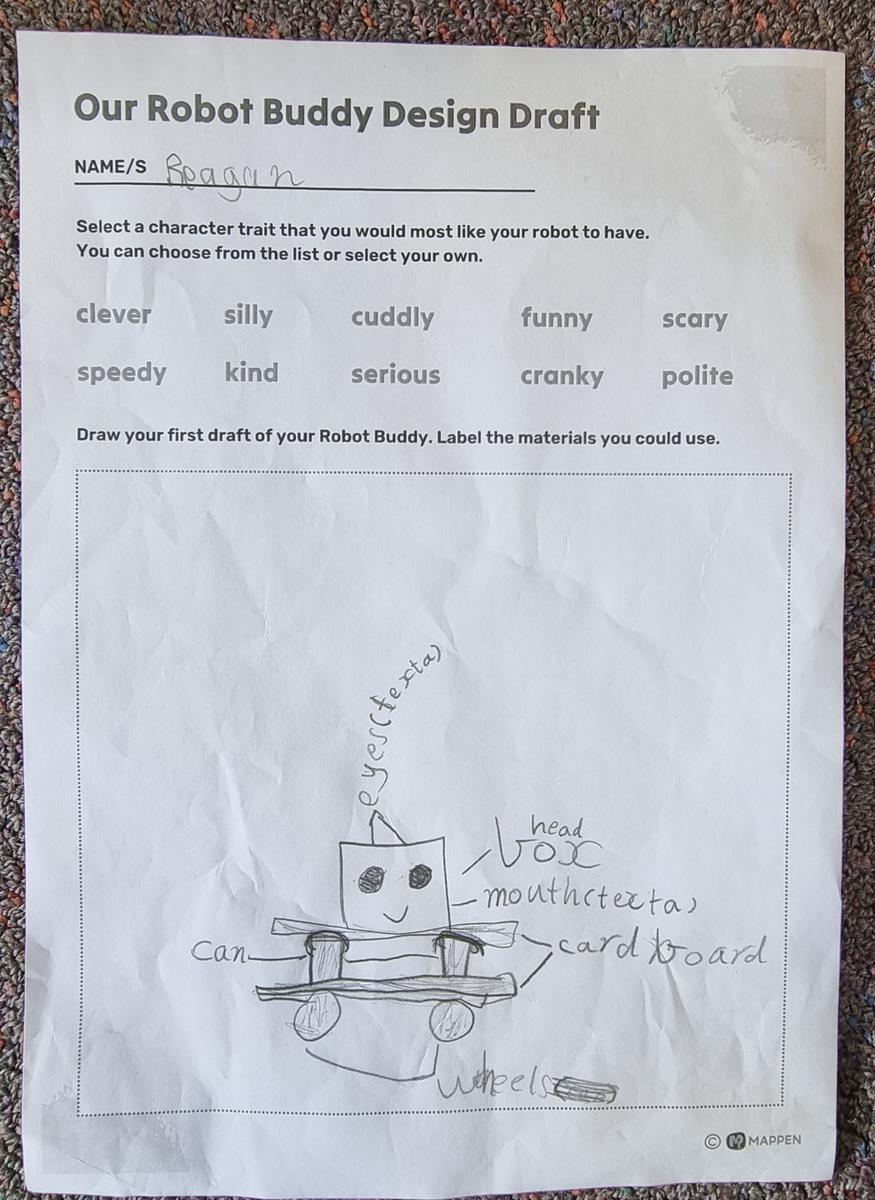 Our Robot Buddy Design Draft
NAME/S Reagan
Select a character trait that you would most like your robot to have.
You can choose from the list or select your own.
clever silly cuddly funny scary
speedy kind serious cranky polite
Draw your first draft of your Robot Buddy. Label the materials you could use.
eyes(texta)
head
box
mouth(texta)
can
card board
wheels
© MAPPEN